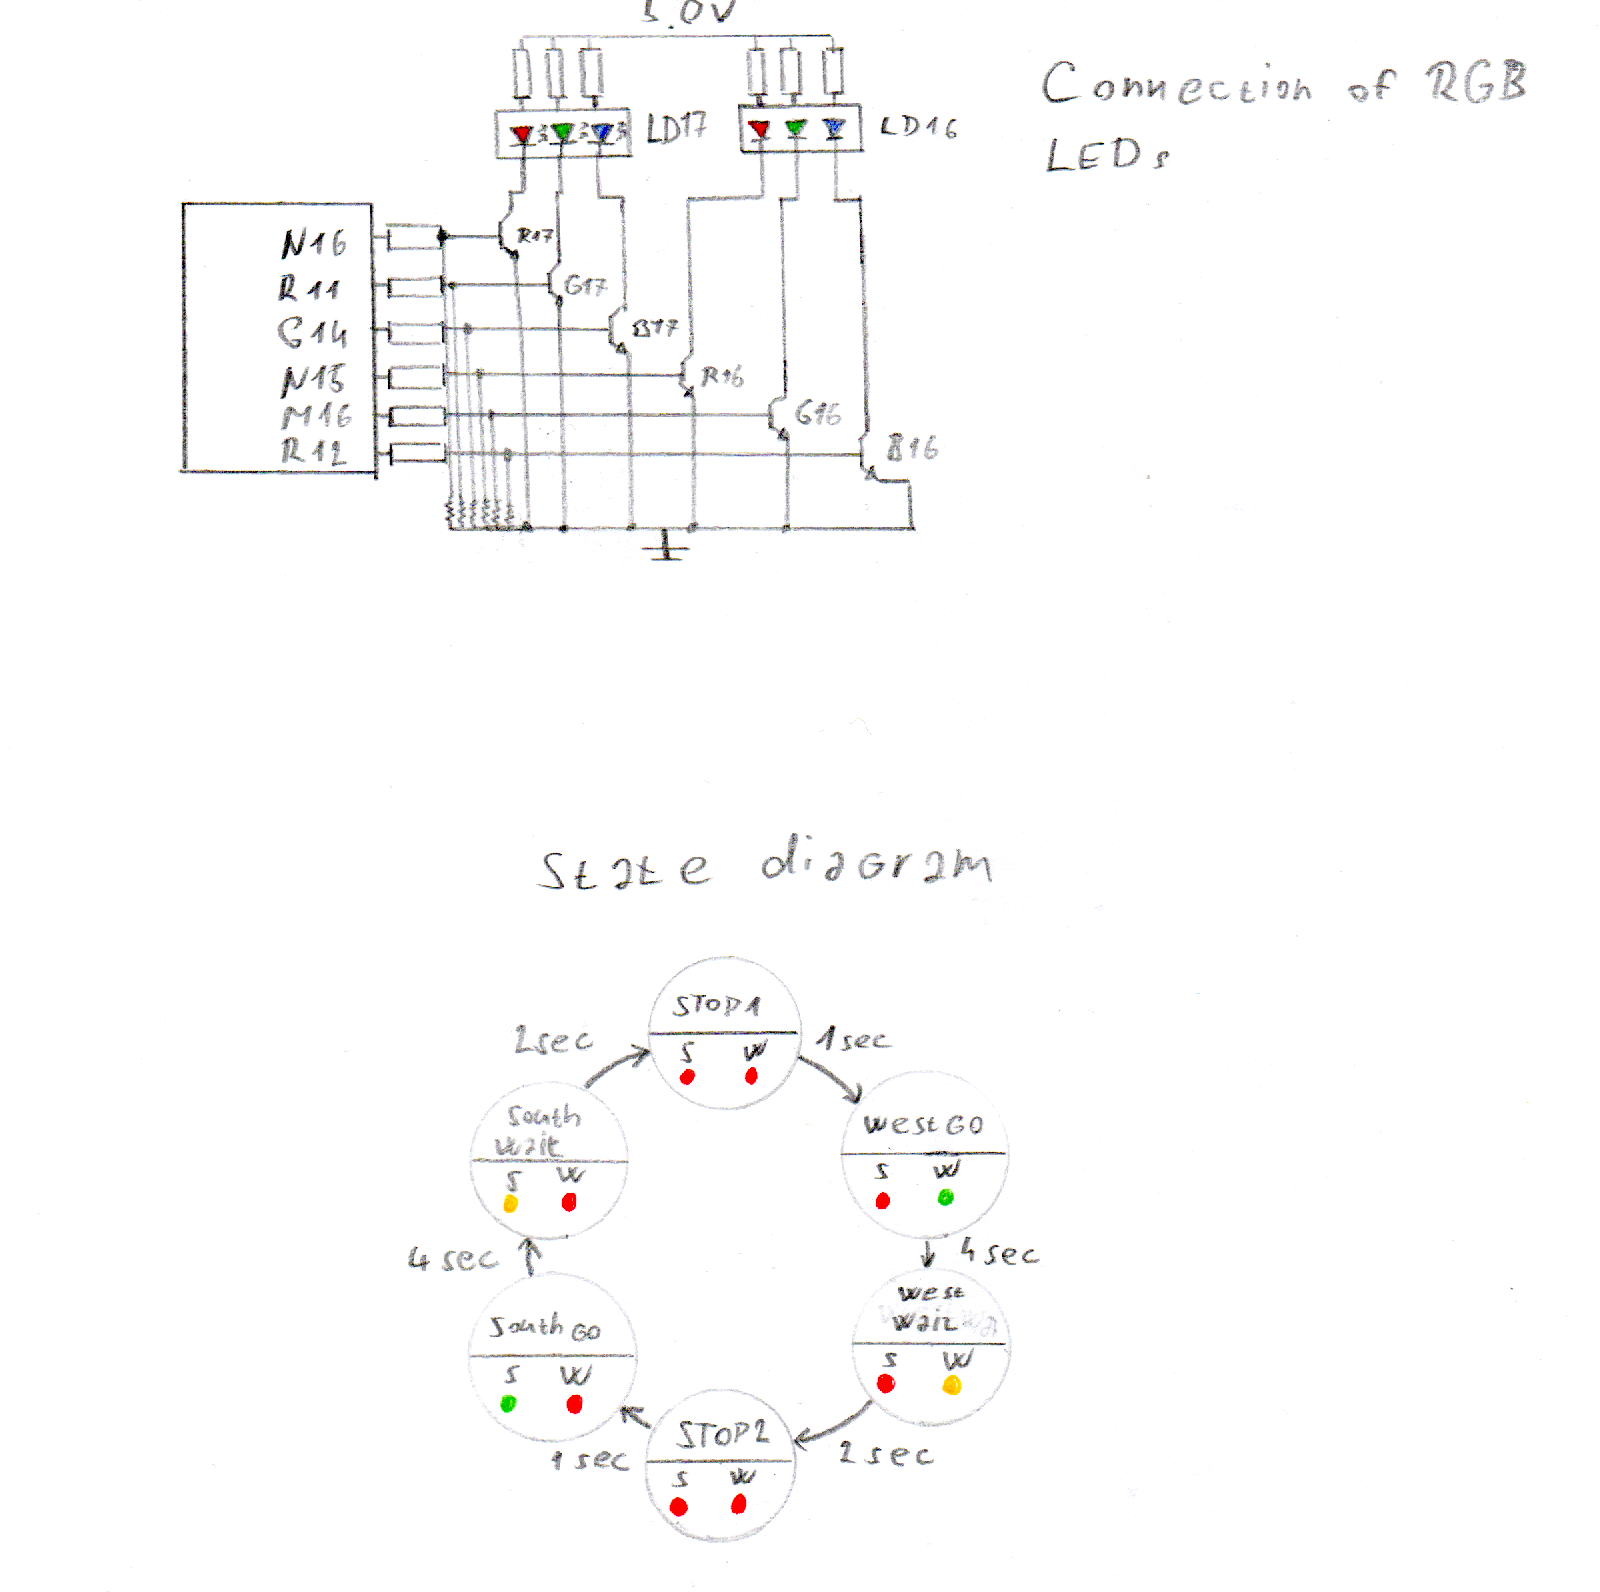 5.0V
Connection of RGB
LEDs
LD17
LD16
N16
R11
G14
N15
M16
R12
R17
G17
B17
R16
G16
B16
State diagram
STOP1
S W
1sec
West GO
S W
4sec
West
Wait
S W
2sec
STOP2
S W
1sec
South GO
S W
4sec
South
Wait
S W
2sec